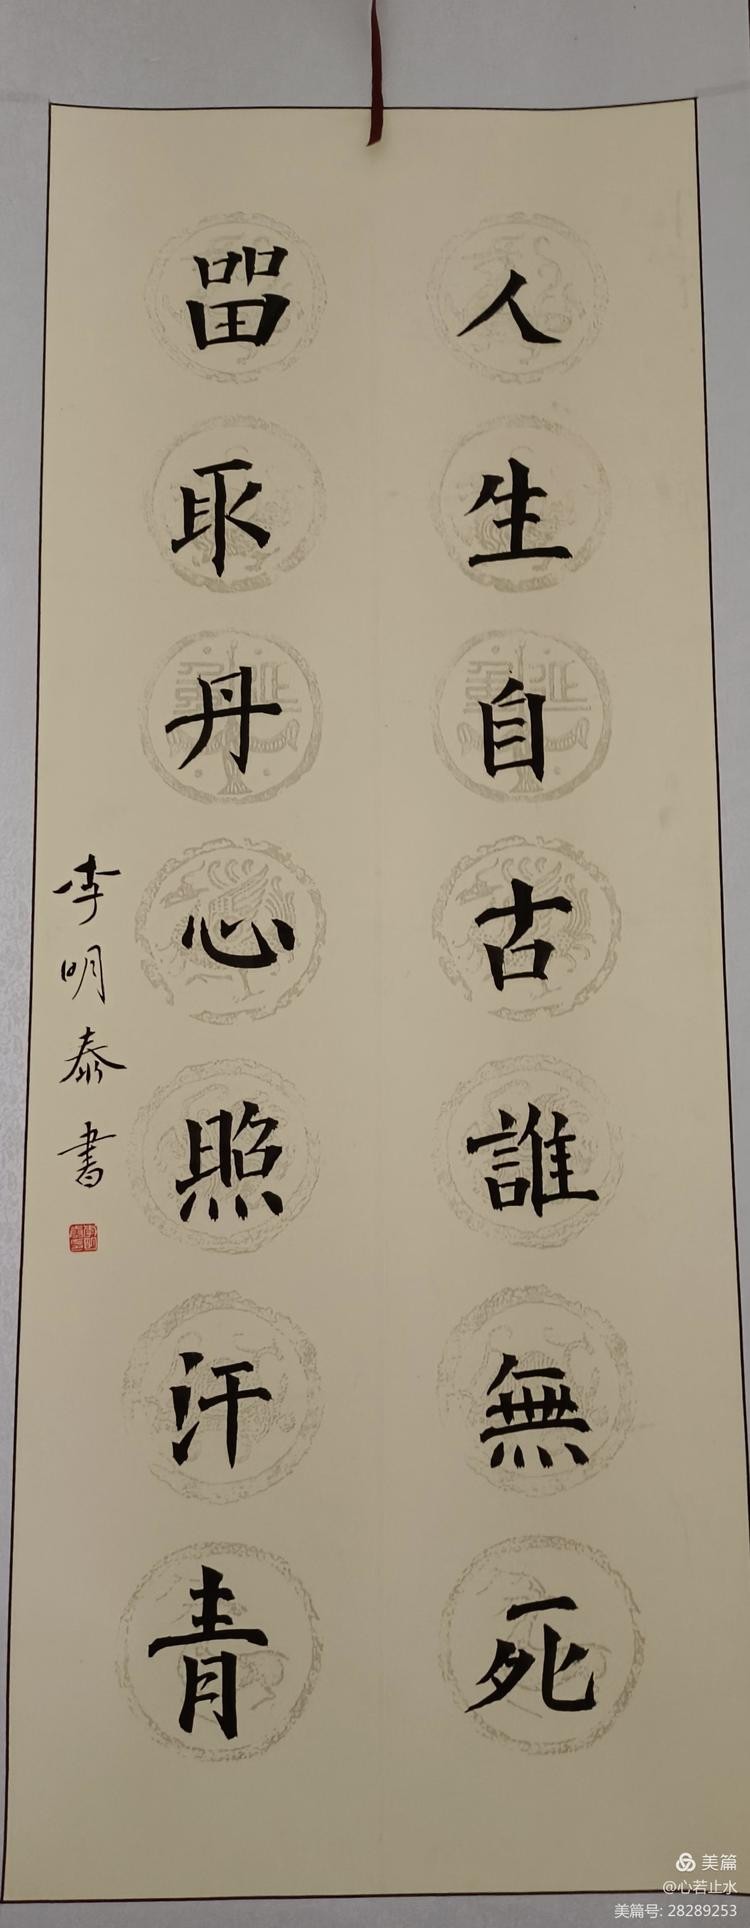 人生自古誰無死
畱取丹心照汗青
李明泰書
美篇
@心若止水
美篇号: 28289253